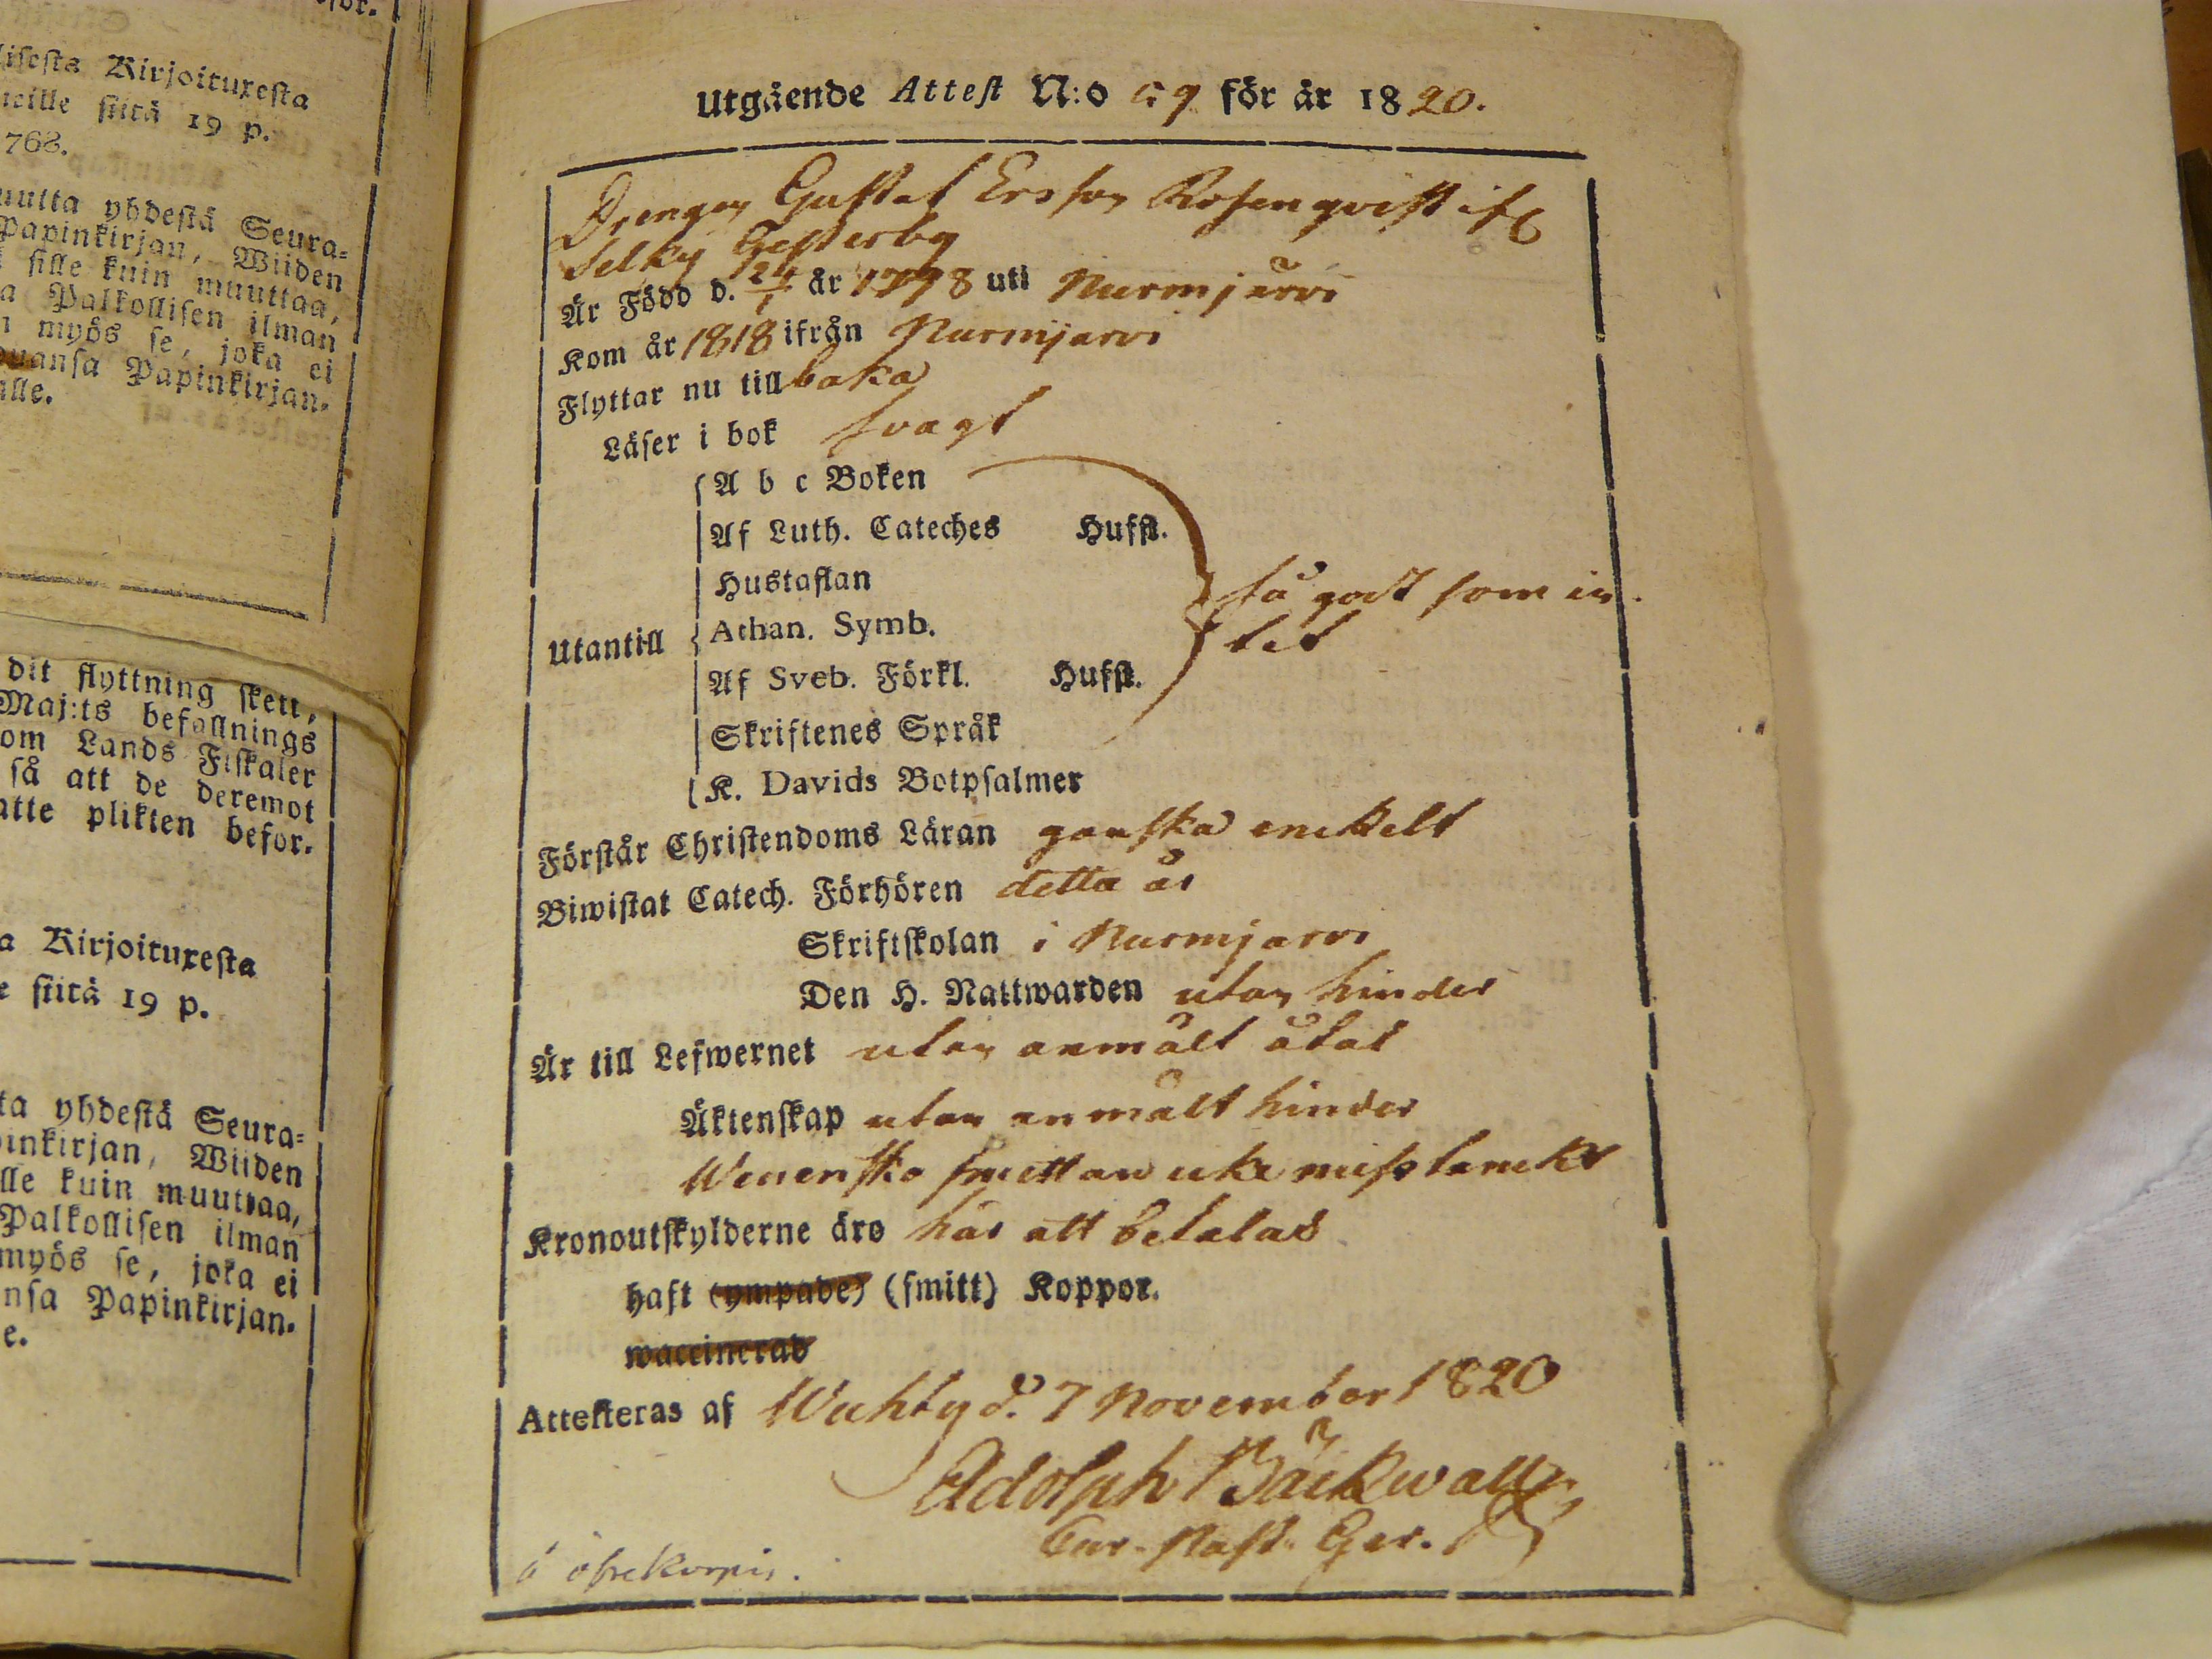 lisesta Kirjoituxesta
neille siitä 19 p.
768.
muutta yhdestä Seura=
Papinkirjan, Wiiden
sille kuin muuttaa,
a Palkollisen ilman
n myös se, joka ei
ouansa Papinkirjan.
alle.
dit flyttning skett,
Maj:ts befallnings
om Lands Fiskaler
så att de deremot
atte plikten befor.
a Kirjoituxesta
e siitä 19 p.
ta yhdestä Seura=
pinkirjan, Wiiden
lle kuin muuttaa,
Palkollisen ilman
myös se, joka ei
nsa Papinkirjan.
e.
Utgående Attest N:o 59 för år 1820.
Drengen Gustaf Ersson Rosenqvist ifr
Selky Gesterby
Är Född d. 24/1 år 1798 uti Nurmjärvi
Kom år 1818 ifrån Nurmijarvi
Flyttar nu till baka
Läser i bok svagt
A b c Boken
Af Luth. Cateches Hufst.
Hustaflan
så godt som in
Utantill Athan. Symb.
tet
Af Sveb. Förkl. Hufst.
Skriftenes Språk
K. Davids Botpsalmer
Förstår Christendoms Läran ganska enckelt
Biwistat Catech. Förhören detta år
Skriftskolan i Nurmjarvi
Den H. Nattwarden utan hinder
Är till Lefwernet utan anmält åtal
Äktenskap utan anmält hinder
Weneriska smittan icke misstänckt
Kronoutskylderne äro här att betalas
haft (ympade) (smitt) Koppor.
waccinerad
Attesteras af Wichty d. 7 November 1820
Adolph Bäckwall
Cur. Past. Ger.
öfrekorpis.